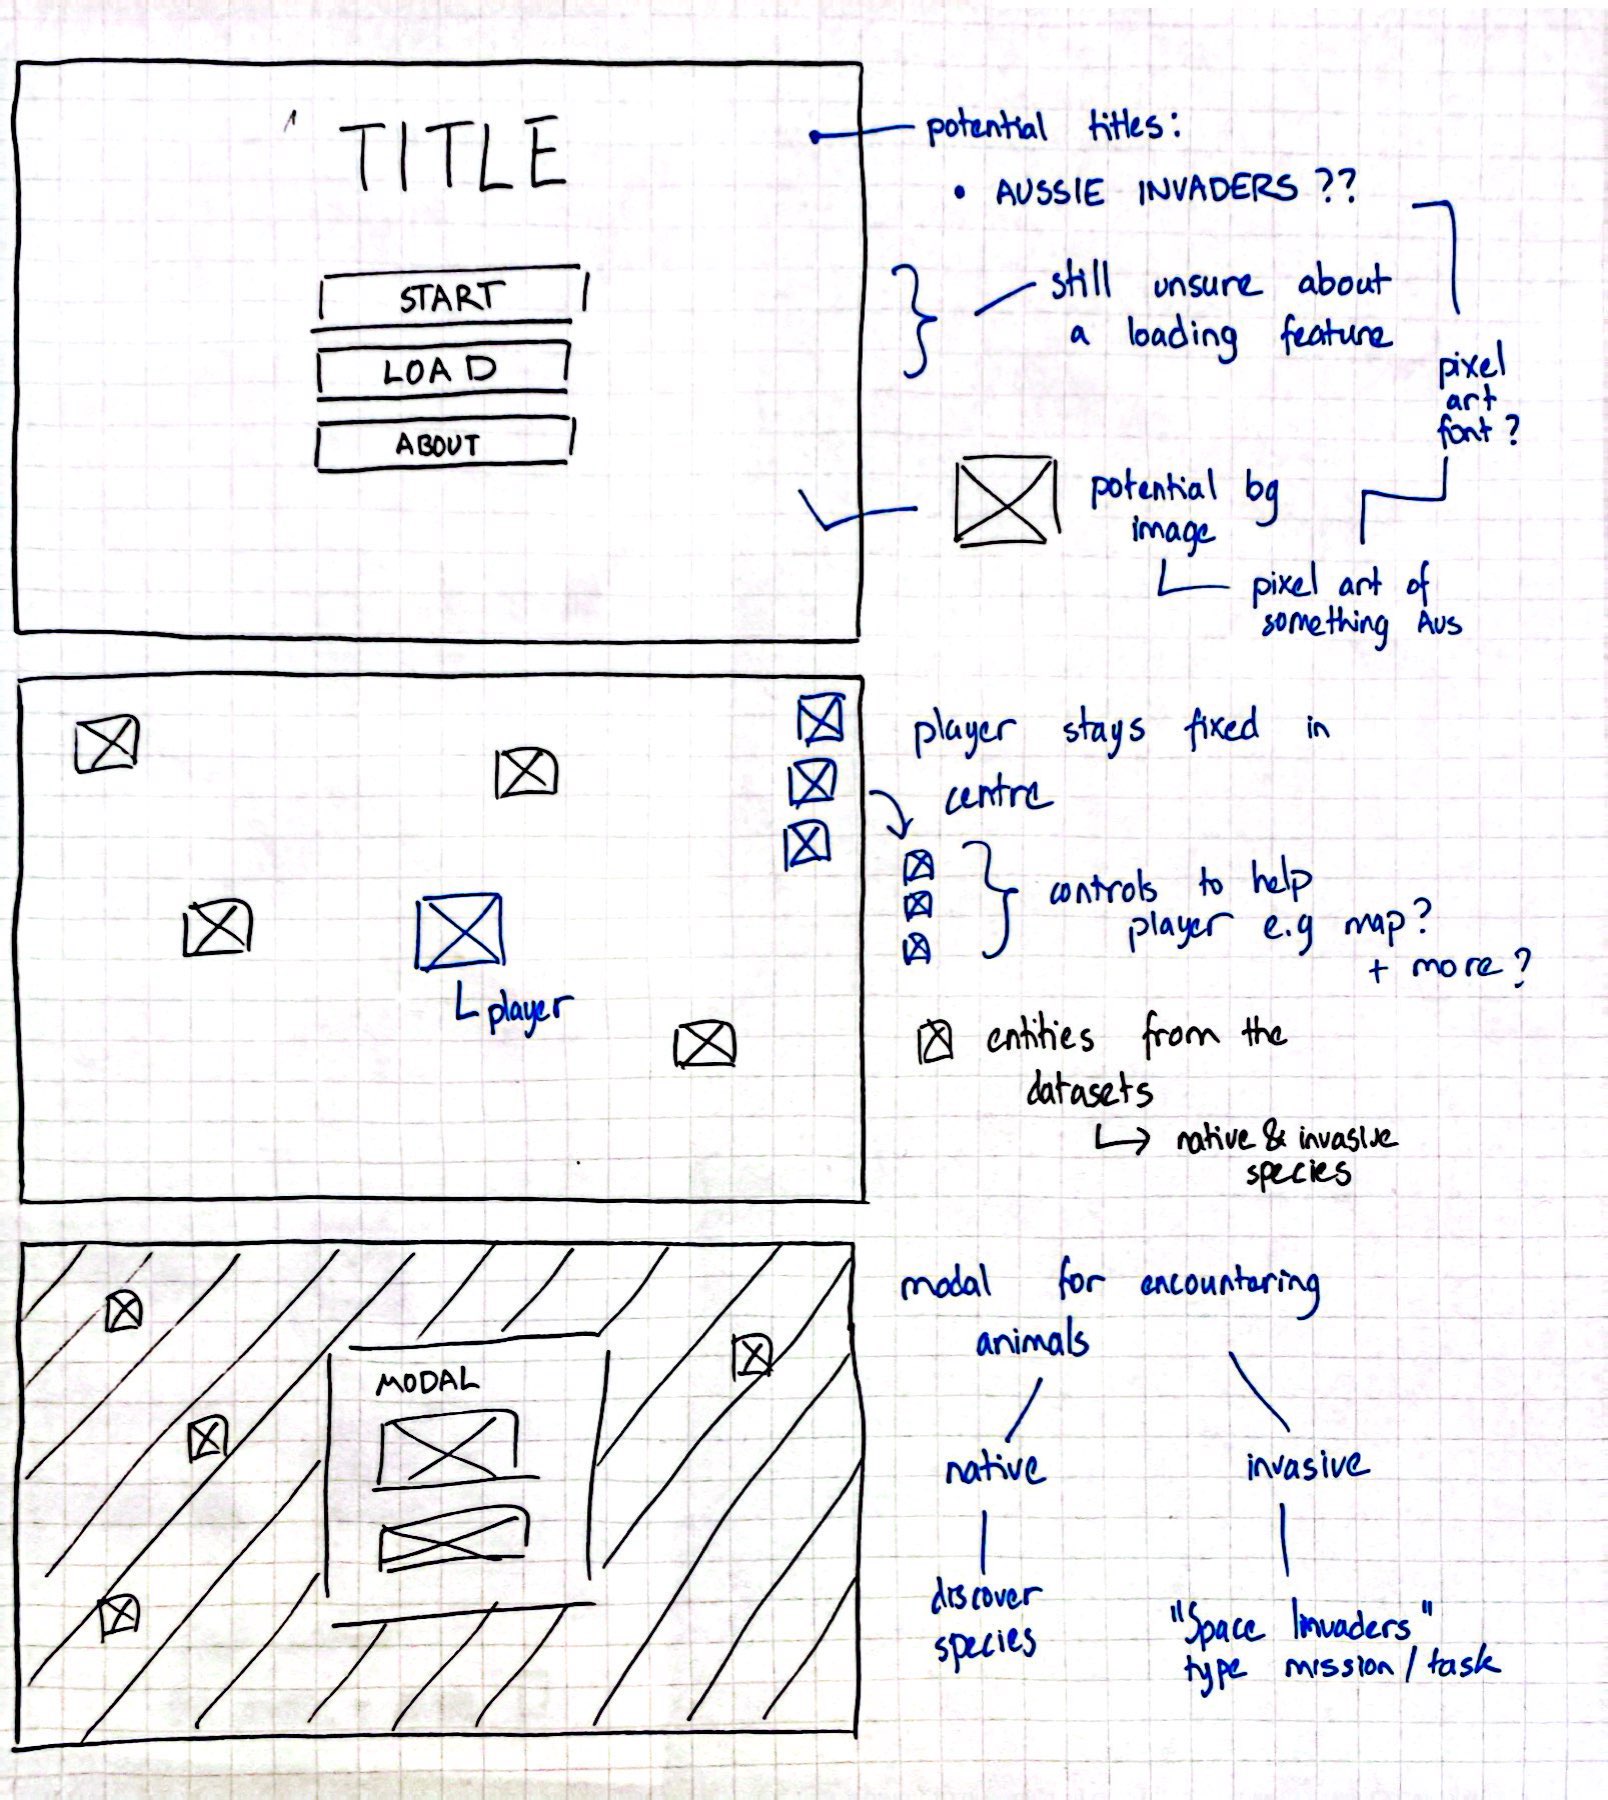 TITLE
START
LOAD
ABOUT
potential titles:
• AUSSIE INVADERS ??
still unsure about
a loading feature
pixel
art
font?
potential bg
image
pixel art of
something Aus
player
player stays fixed in
centre
controls to help
player e.g map?
+ more?
entities from the
datasets
native & invasive
species
MODAL
modal for encountering
animals
native
invasive
discover
species
"Space Invaders"
type mission / task